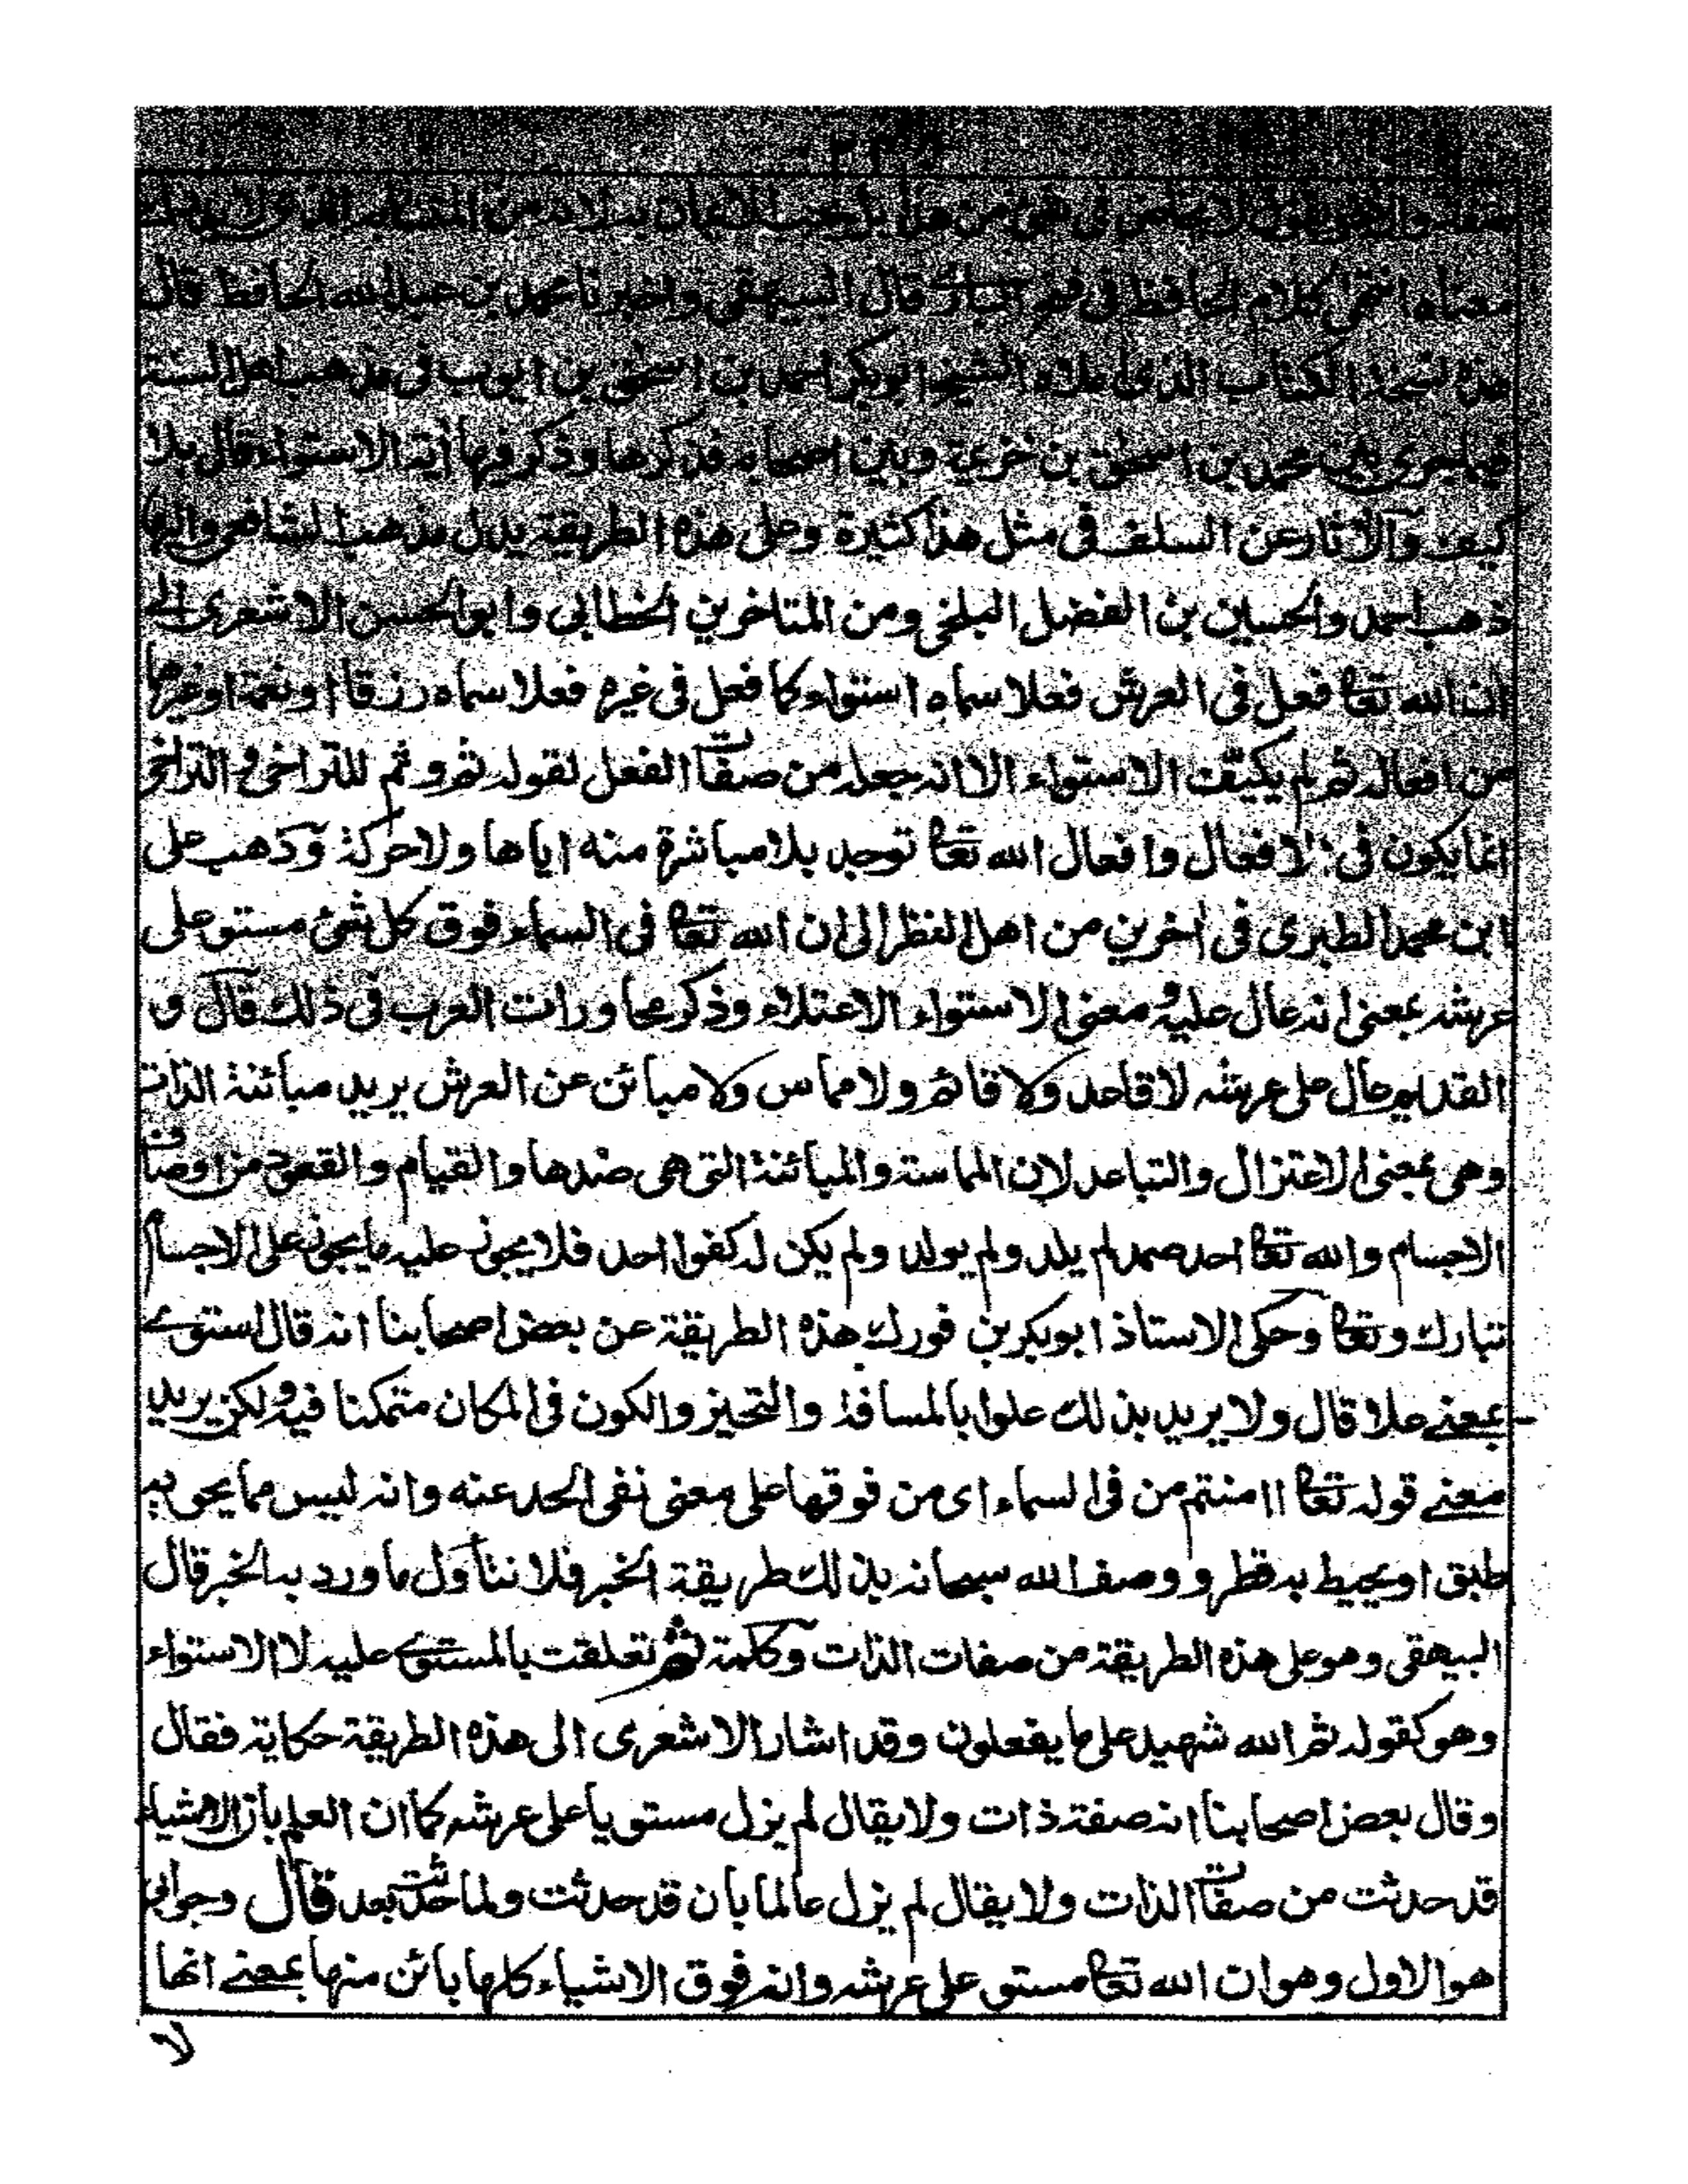 صفة والآخر يقول لا يخاض فى شئ من هذا بل يجب الايمان به لانه من المتشابه الذى لا يدرك
معناه انتهى كلام الحافظ فى فتح البارى قال البيهقى واخبرنا محمد بن عبد الله الحافظ قال
هذه نسخة الكتاب الذى املاه الشيخ ابوبكر احمد بن اسحق بن ايوب فى مذهب اهل السنة
فيما جرى بين محمد بن اسحق بن خزيمة وبين اصحابه فذكرها وذكر فيها آية الاستواء قال بلا
كيف والآثار عن السلف فى مثل هذا كثيرة وعلى هذه الطريقة يدل مذهب الشافعى واليها
ذهب احمد والحسين بن الفضل البلخى ومن المتاخرين الخطابى وابوالحسن الاشعرى الى
ان الله تعالى فعل فى العرش فعلا سماه استواء كما فعل فى غيره فعلا سماه رزقا او نعمة او غيرهما
من افعاله ثم لم يكيّف الاستواء الا انه جعله من صفات الفعل لقوله ثم و ثم للتراخى و التراخى
انما يكون فى الافعال وافعال الله تعالى توجد بلا مباشرة منه اياها ولا حركة وذهب على
ابن محمد الطبرى فى آخرين من اهل النظر الى ان الله تعالى فى السماء فوق كل شئ مستو على
عرشه بمعنى انه عال عليه و معنى الاستواء الاعتلاء وذكر محاورات العرب فى ذلك قال و
القديم عال على عرشه لا قاعد ولا قائم ولا مماس ولا مبائن عن العرش يريد مبائنة الذات
وهى بمعنى الاعتزال والتباعد لان المماسة والمبائنة التى هى ضدها والقيام والقعود من اوصاف
الاجسام والله تعالى احد صمد لم يلد ولم يولد ولم يكن له كفوا احد فلا يجوز عليه ما يجوز على الاجسام
تبارك وتعالى وحكى الاستاذ ابوبكر بن فورك هذه الطريقة عن بعض اصحابنا انه قال استوى
بمعنے علا قال ولا يريد بذلك علوا بالمسافة والتحيز والكون فى المكان متمكنا فيه ولكن يريد
معنے قوله تعالى ءامنتم من فى السماء اى من فوقها على معنى نفى الحد عنه وانه ليس مما يحويه
طبق او يحيط به قطر و وصف الله سبحانه بذلك طريقة الخبر فلا نتأول ما ورد به الخبر قال
البيهقى وهو على هذه الطريقة من صفات الذات وكلمة ثم تعلقت بالمستوى عليه لا الاستواء
وهو كقوله ثم الله شهيد على ما يفعلون وقد اشار الاشعرى الى هذه الطريقة حكاية فقال
وقال بعض اصحابنا انه صفة ذات ولا يقال لم يزل مستويا على عرشه كما ان العلم بأن الاشياء
قد حدثت من صفات الذات ولا يقال لم يزل عالما بأن قد حدثت ولما حدثت بعد قال وجوابى
هو الاول وهو ان الله تعالى مستو على عرشه وانه فوق الاشياء كلها بائن منها بمعنے انها
لا